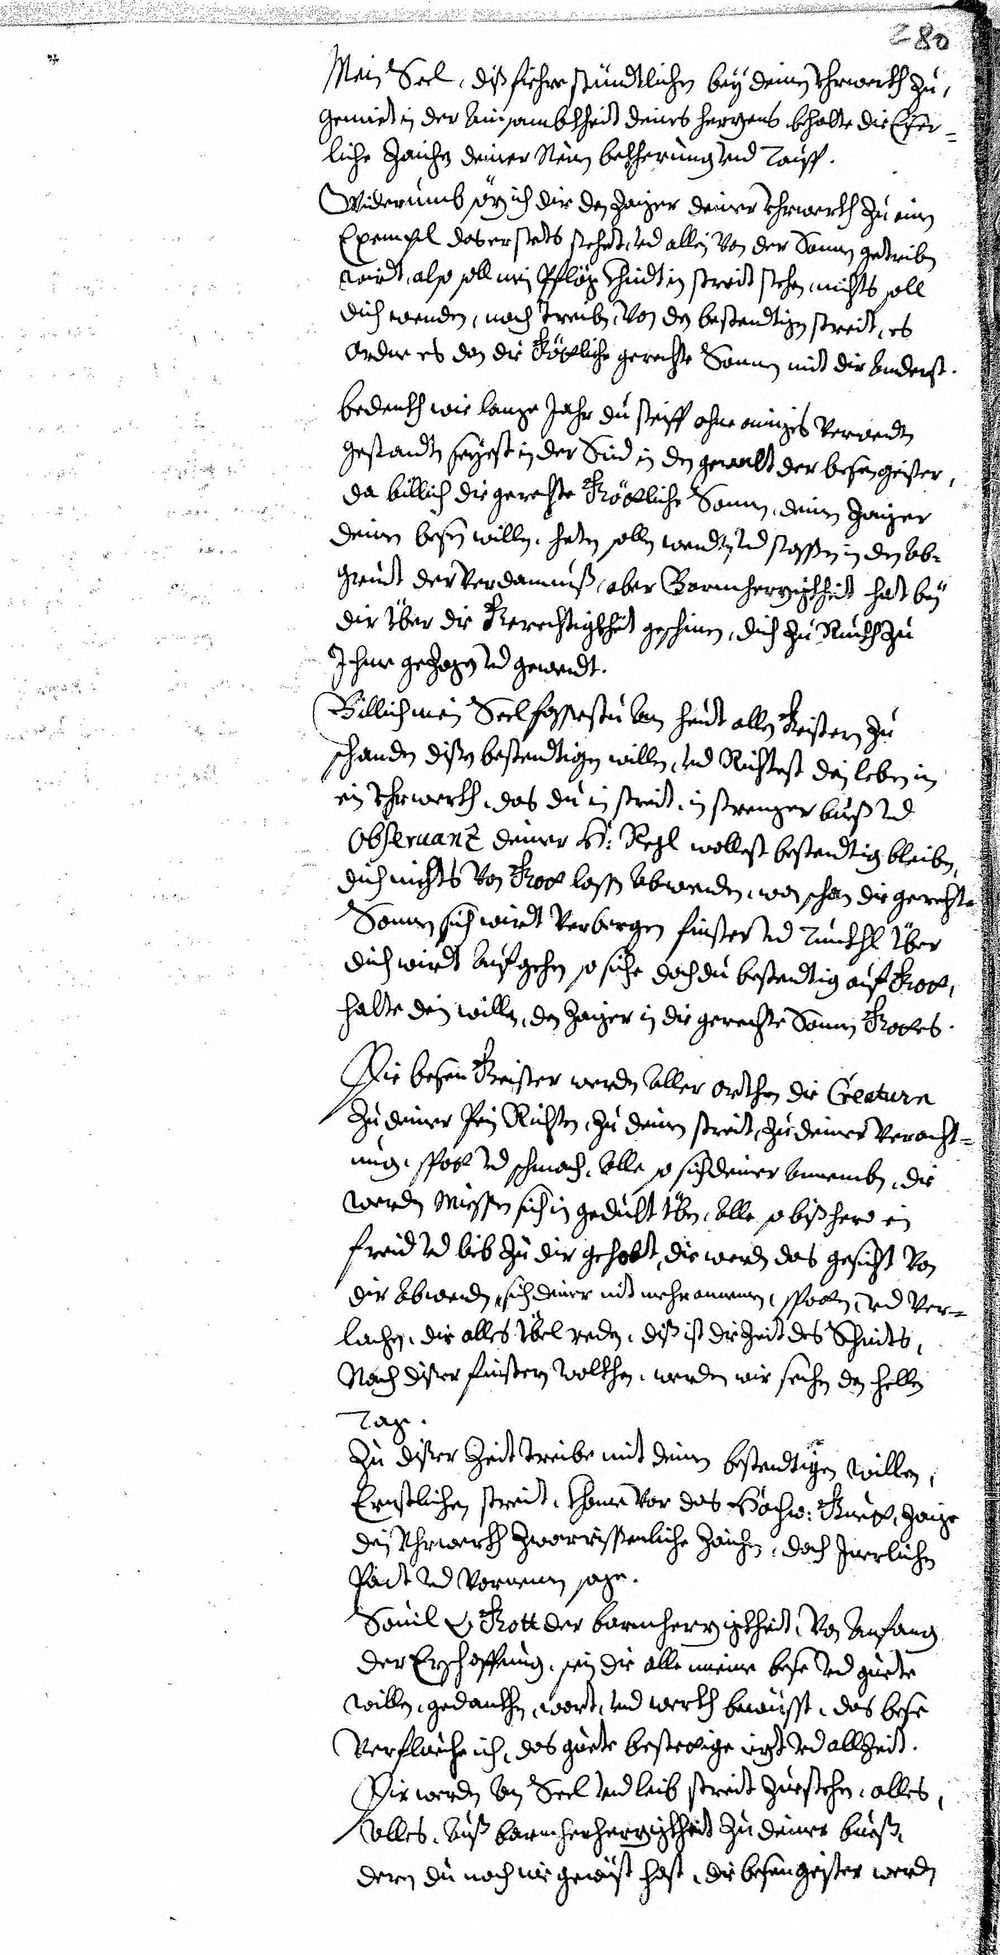 280
Mein Seel, diß fiehre stündtlichen bey deinen Uhrwerkh zu
gemiet in der ainsambkheit deines herzens behalte die Eyser-
liche Zaichen deiner Neuen bekherung und Tauff.
Widerumb sez ich dir den Zaiger deiner Uhrwerkh zu einen
Exempel das er stets stehet, und allein von der Sonnen getriben
wirdt, also soll mein Kindt in streit stehen, nichts soll
dich wenden, noch treiben, von den bestendtigen streit, es
ordne es dan die Göttliche gerechte Sonnen mit dir anderst.
bedenkh wie lange Jahr du steiff ohne ainiges verwenden
gestandten seyest in der Sind in den gewalt der besen geister,
da billich die gerechte Göttliche Sonnen, deinen Zaiger
deinen besen willen, heten sollen wendten und stossen in den ab-
grundt der Verdamnuß, aber Barmherzigkheit hat bey
dir über die Gerechtigkheit geschinen, dich zu Ruckh zu
Ihme gezogen und gewendt.
Billich mein Seel fassestu an heut allen Geistern zu
schanden disen bestendtigen willen, und Richtest dein leben in
ein Uhrwerkh, das du in streit, in strenger buß und
Observanz deiner H: Regl wollest bestendtig bleiben,
dich nichts von Gott lassen abwenden, wan schon die gerechte
Sonnen sich wirdt verbergen finster und Tunkhl über
dich wirdt aufgehen so siche doch du bestendtig auf Gott,
halte dein willen, den Zaiger in die gerechte Sonnen Gottes.
Die besen Geister werden aller orthen die Creaturn
zu deiner Pein Richten, zu deinen streit, zu deiner veracht-
ung, spott und schmach, alle so sich deiner annemben, die
werden miessen sich in gedult üben, alle so bißhero ein
freid und lieb zu dir gehabt, die werden das gesicht von
dir abwenden, sich deiner nit mehr annemen, spotten, und ver-
lachen, dir alles übel reden, diß ist die Zeit des Schnits,
Nach diser finstern wolkhen, werden wir sechen den hellen
Tag.
Zu diser Zeit treibe mit deinen bestendtigen willen,
Ernstlichen streit, khome vor das Hochw: Guett, zaige
dein Uhrwerkh zwar eisserliche Zaichen, doch Inerlichen
und sage.
Souil O Gott der barmherzigkheit, von Anfang
der Erschaffung, sein dir alle meine bese und guete
willen, gedankhen, wort, und werkh bewusst, das bese
verflueche ich, das guete bestettige iezt und allzeit.
Dir werden an Seel und leib streit zuestehen, alles,
alles, auß barmherherzigkheit zu deiner bueß,
deren du noch nie gewist hast, die besen geister werden